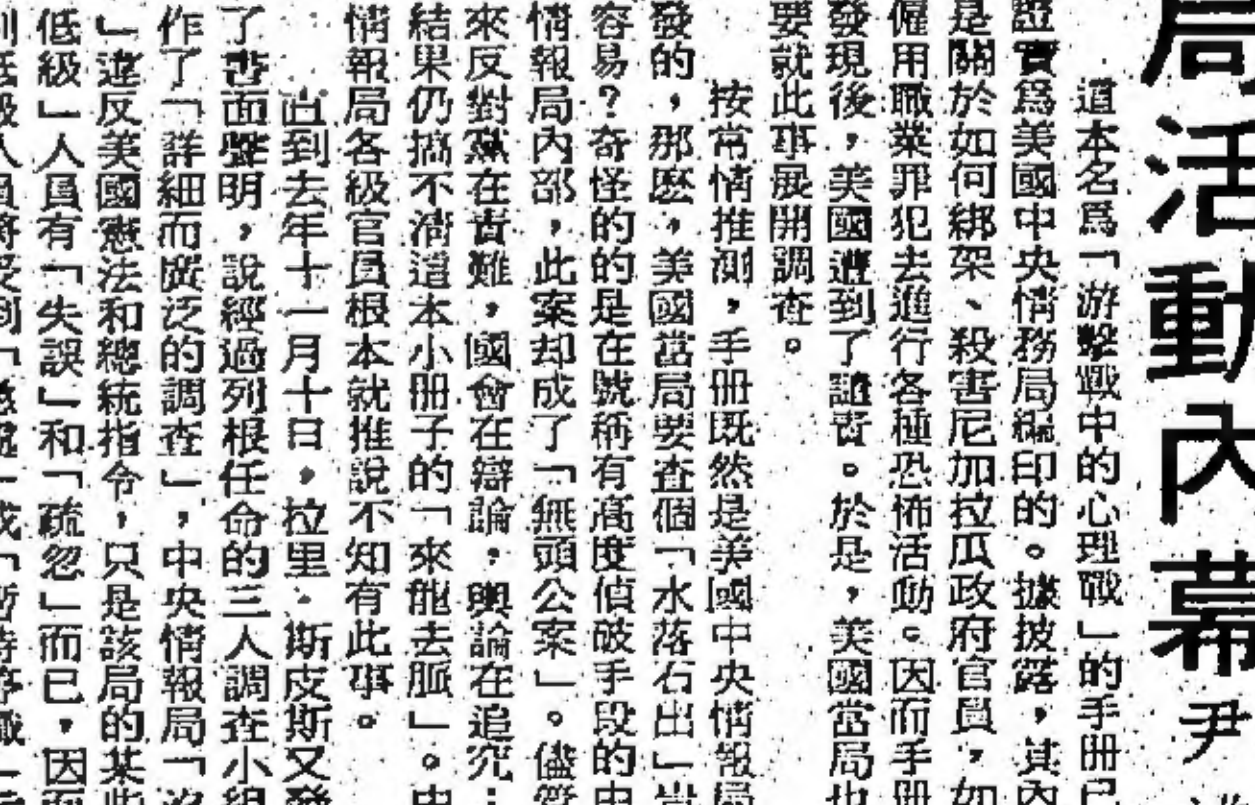 局活動內幕 尹
道本名爲「游擊戰中的心理戰」的手册已
證實爲美國中央情務局編印的。據披露,其內
是關於如何綁架、殺害尼加拉瓜政府官員,如
僱用職業罪犯去進行各種恐怖活動。因而手册
發現後,美國遭到了譴責。於是,美國當局也
要就此事展開調查。
按常情推測,手册既然是美國中央情報局
發的,那麽,美國當局要查個「水落石出」豈
容易?奇怪的的是在號稱有高度偵破手段的中
情報局內部,此案却成了「無頭公案」。儘管
來反對黨在責難,國會在辯論,輿論在追究:
結果仍搞不清這本小册子的「來龍去脈」。中
情報局各級官員根本就推說不知有此事。
直到去年十一月十日,拉里·斯皮斯又發
了書面聲明,說經過列根任命的三人調查小組
作了「詳細而廣泛的調查」,中央情報局「沒
」違反美國憲法和總統指令,只是該局的某些
低級」人員有「失誤」和「疏忽」而已,因而